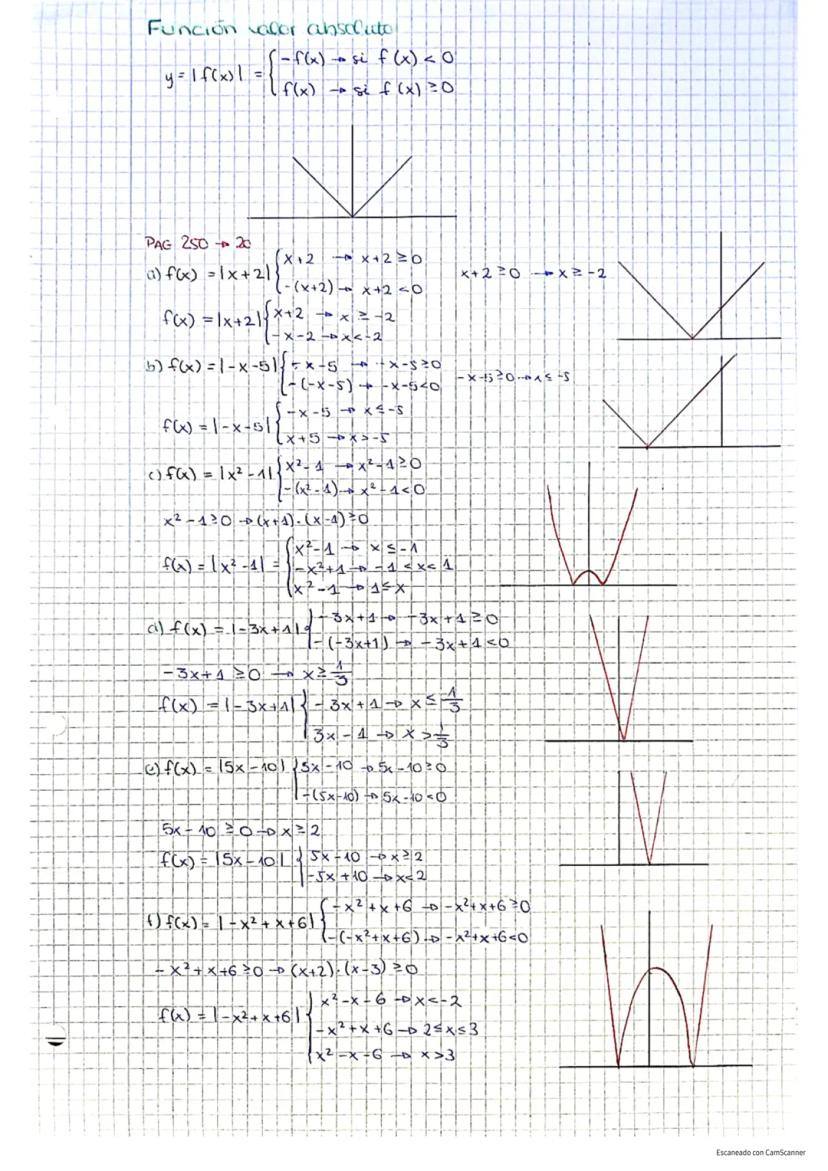 Función valor absoluto
y = |f(x)| = { -f(x) → si f(x) < 0
f(x) → si f(x) ≥ 0
PAG 250 → 20
a) f(x) = |x+2| { x+2 → x+2 ≥ 0
-(x+2) → x+2 < 0
x+2 ≥ 0 → x ≥ -2
f(x) = |x+2| { x+2 → x ≥ -2
-x-2 → x < -2
b) f(x) = |-x-5| { -x-5 → -x-5 ≥ 0
-(-x-5) → -x-5 < 0
-x-5 ≥ 0 → x ≤ -5
f(x) = |-x-5| { -x-5 → x ≤ -5
x+5 → x > -5
c) f(x) = |x²-1| { x²-1 → x²-1 ≥ 0
-(x²-1) → x²-1 < 0
x²-1 ≥ 0 → (x+1)·(x-1) ≥ 0
f(x) = |x²-1| = { x²-1 → x ≤ -1
-x²+1 → -1 < x < 1
x²-1 → 1 ≤ x
d) f(x) = |-3x+1| { -3x+1 → -3x+1 ≥ 0
-(-3x+1) → -3x+1 < 0
-3x+1 ≥ 0 → x ≥ 1/3
f(x) = |-3x+1| { -3x+1 → x ≤ 1/3
3x-1 → x > 1/3
e) f(x) = |5x-10| { 5x-10 → 5x-10 ≥ 0
-(5x-10) → 5x-10 < 0
5x-10 ≥ 0 → x ≥ 2
f(x) = |5x-10| { 5x-10 → x ≥ 2
-5x+10 → x < 2
f) f(x) = |-x²+x+6| { -x²+x+6 → -x²+x+6 ≥ 0
-(-x²+x+6) → -x²+x+6 < 0
-x²+x+6 ≥ 0 → (x+2)·(x-3) ≥ 0
f(x) = |-x²+x+6| { x²-x-6 → x < -2
-x²+x+6 → 2 ≤ x ≤ 3
x²-x-6 → x > 3
Escaneado con CamScanner